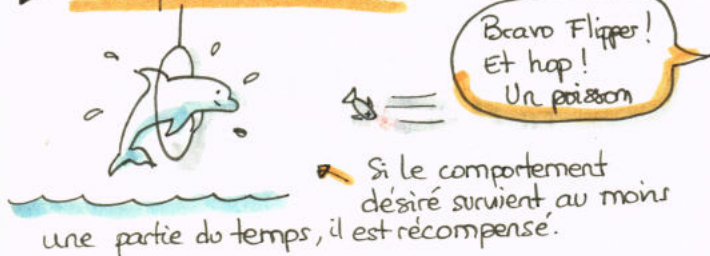 Bravo Flipper!
Et hop!
Un poisson
Si le comportement
désiré survient au moins
une partie du temps, il est récompensé.